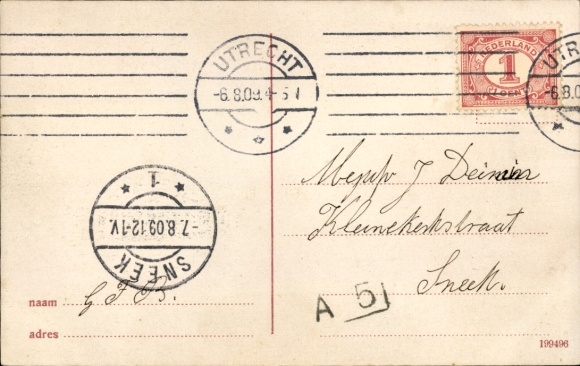 UTRECHT
-6.8.09.4-5
NEDERLAND
1
CENT
UTR
-6.8.0
SNEEK
-7.8.09.12-1V.
1
J
Kleinekerkstraat
Sneek.
naam
adres
A 51
199496